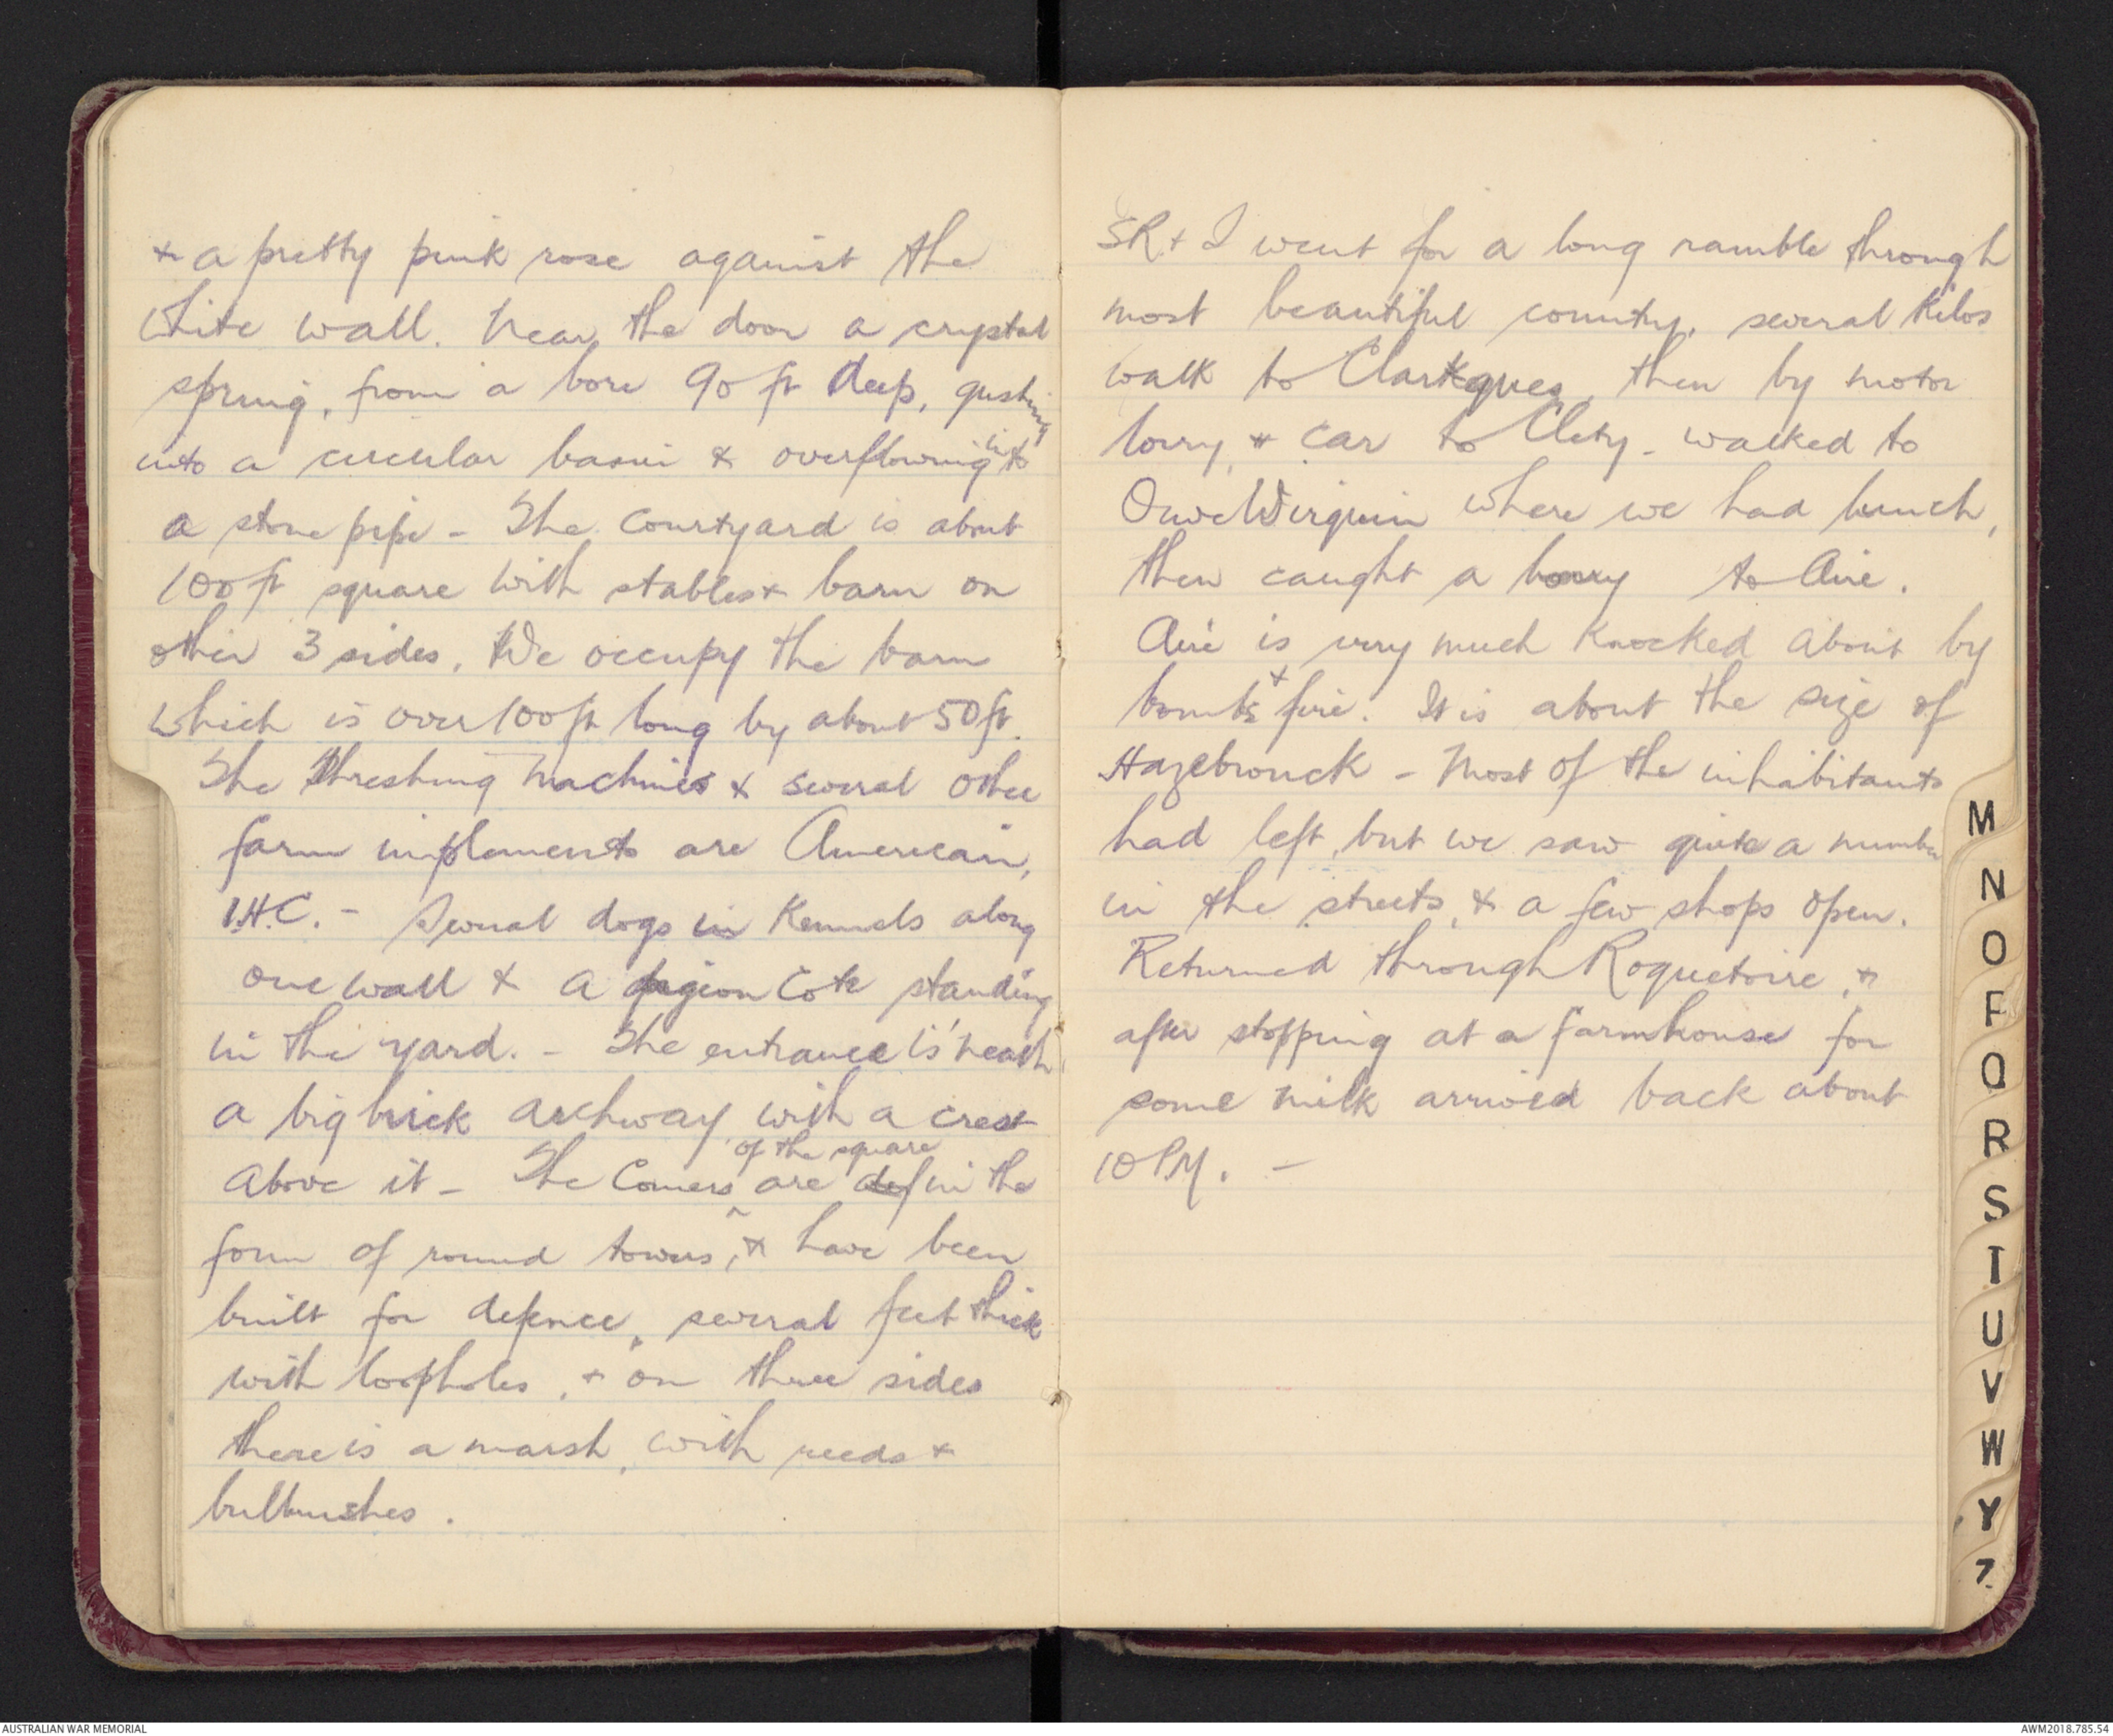 & a pretty pink rose against the
white wall. Near the door a crystal
spring, from a bore 90 ft deep, gushing
into a circular basin & overflowing into
a stone pipe - The courtyard is about
100 ft square with stables & barn on
other 3 sides. We occupy the barn
which is over 100 ft long by about 50 ft.
The Threshing Machines & several other
farm implements are American,
I.H.C. - Several dogs in Kennels along
one wall & a pigeon cote standing
in the yard. - The entrance is 'neath
a big brick archway with a crest
of the square
above it - The Corners ^ are def in the
form of round towers, & have been
built for defence, several feet thick
with loopholes, & on three sides
there is a marsh, with reeds &
bullrushes.
SR & I went for a long ramble through
most beautiful country, several Kilos
walk to Clarkques, then by motor
lorry, & car to Clety - walked to
OuveWirquin where we had lunch,
then caught a lorry to Aire.
Aire is very much Knocked about by
bombs & fire. It is about the size of
Hazebrouck - Most of the inhabitants
had left, but we saw quite a number
in the streets, & a few shops open.
Returned through Roquetoire, &
after stopping at a farmhouse for
some milk arrived back about
10 P.M. -
M
N
O
P
Q
R
S
T
U
V
W
Y
Z
AUSTRALIAN WAR MEMORIAL
AWM2018.785.54